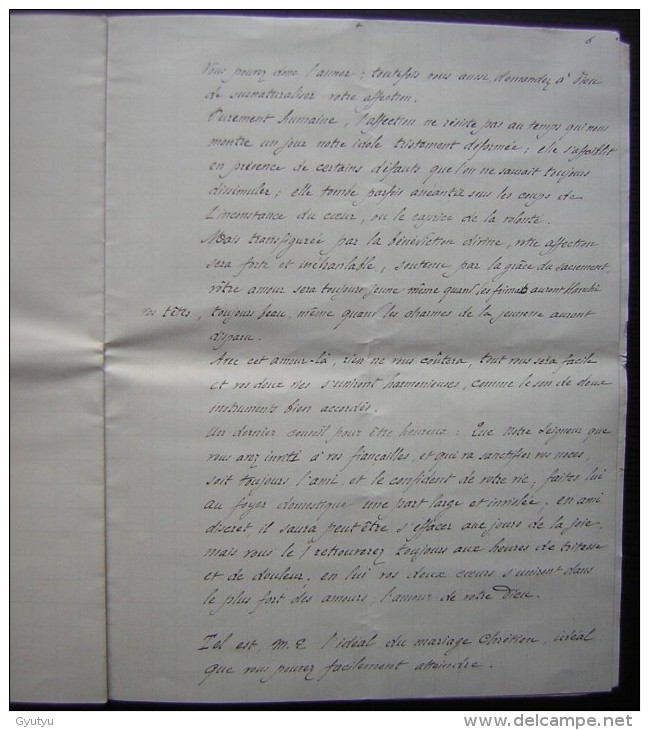 6
Vous pouvez donc l'aimer ; toutefois vous aussi, demandez à Dieu
de surnaturaliser votre affection.
Purement humaine, l'affection ne résiste pas au temps qui nous
montre un jour notre idole tristement déformée ; elle s'affaiblit
en présence de certains défauts que l'on ne saurait toujours
dissimuler ; elle tombe parfois anéantie sous les coups de
l'inconstance du cœur, ou le caprice de la volonté.
Mais transfigurée par la bénédiction divine, votre affection
sera forte et inébranlable, soutenue par la grâce du sacrement,
vôtre amour sera toujours jeune même quand les frimats auront blanchi
vos têtes, toujours beau, même quand les charmes de la jeunesse auront
disparu.
Avec cet amour-là, rien ne vous coûtera, tout vous sera facile
et vos deux vies s'uniront harmonieuses, comme le son de deux
instruments bien accordés.
Un dernier conseil pour être heureux : Que Notre Seigneur que
vous avez invité à vos fiançailles, et qui va sanctifier vos noces,
soit toujours l'ami et le confident de votre vie, faites lui
au foyer domestique une part large et inviolée, en ami
discret, il saura peut être s'effacer aux jours de la joie,
mais vous le retrouverez toujours aux heures de tristesse
et de douleur, en lui vos deux cœurs s'uniront dans
le plus fort des amours, l'amour de votre Dieu.
Tel est, M. E l'idéal du mariage Chrétien, idéal
que vous pouvez facilement atteindre.
Gyutyu
www.delcampe.net